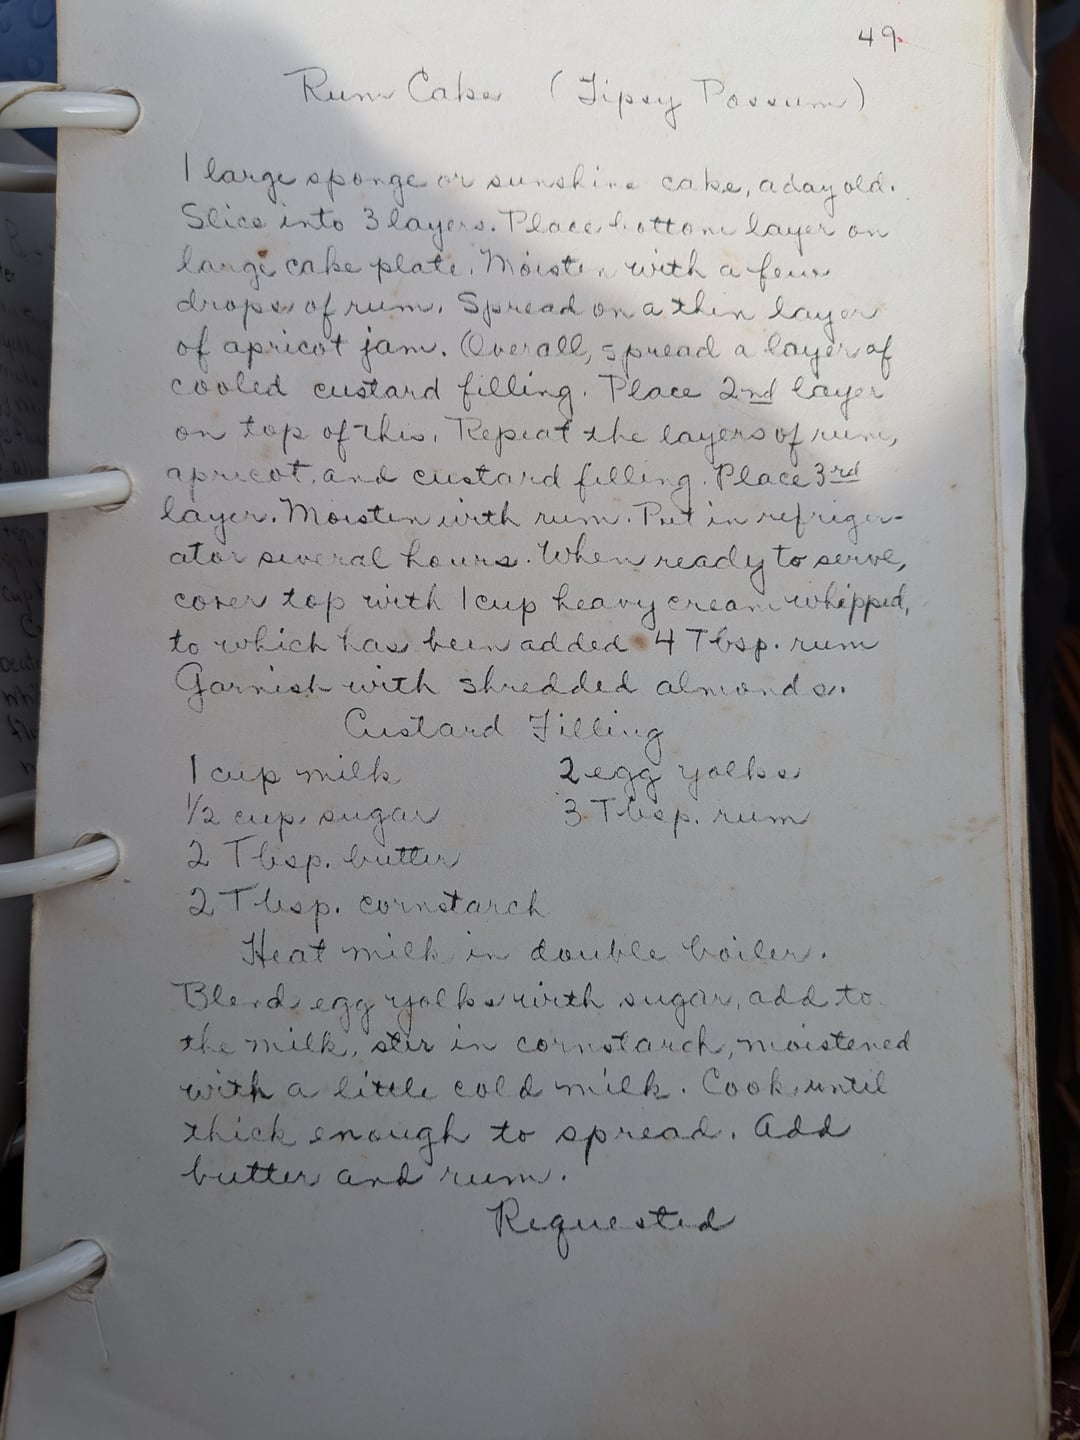 49.
Rum Cake (Tipsy Possum)
1 large sponge or sunshine cake, a day old.
Slice into 3 layers. Place bottom layer on
large cake plate. Moisten with a few
drops of rum. Spread on a thin layer
of apricot jam. Overall, spread a layer of
cooled custard filling. Place 2nd layer
on top of this. Repeat the layers of rum,
apricot, and custard filling. Place 3rd
layer. Moisten with rum. Put in refriger-
ator several hours. When ready to serve,
cover top with 1 cup heavy cream whipped,
to which has been added 4 Tbsp. rum
Garnish with shredded almonds.
Custard Filling
1 cup milk 2 egg yolks
1/2 cup sugar 3 Tbsp. rum
2 Tbsp. butter
2 Tbsp. cornstarch
Heat milk in double boiler.
Blend egg yolks with sugar, add to
the milk, stir in cornstarch, moistened
with a little cold milk. Cook until
thick enough to spread. Add
butter and rum.
Requested